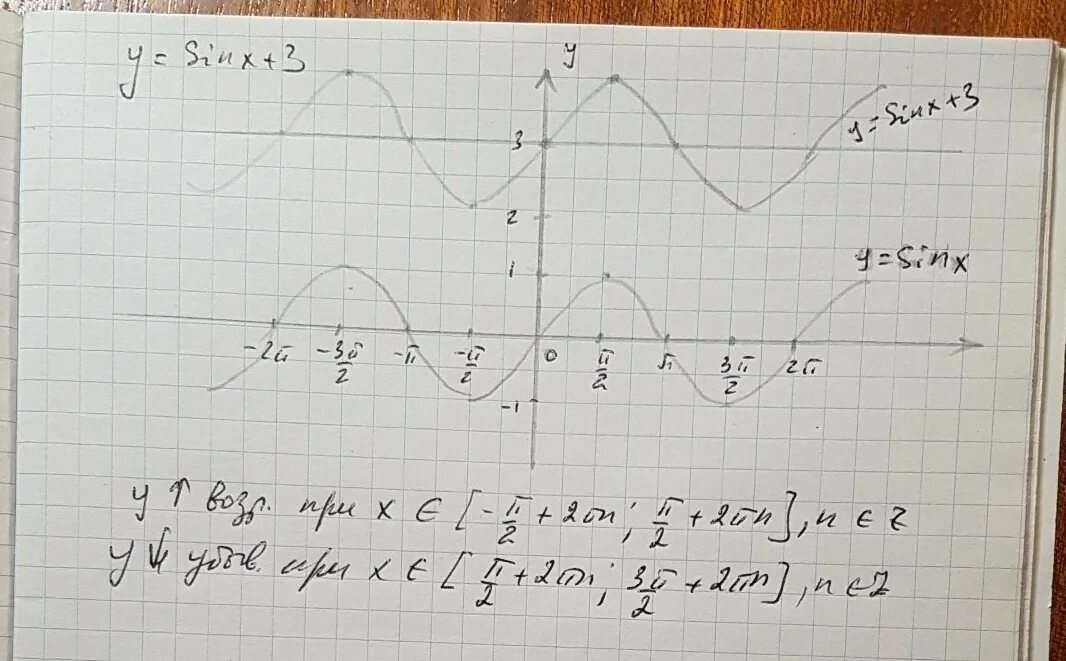 y = Sinx+3
y
y = Sinx+3
3
2
1
y = Sinx
-2π -3π/2 -π -π/2 0 π/2 π 3π/2 2π
-1
y ↑ возр. при x ∈ [-π/2 + 2πn; π/2 + 2πn], n ∈ Z
y ↓ убыв. при x ∈ [π/2 + 2πn; 3π/2 + 2πn], n ∈ Z